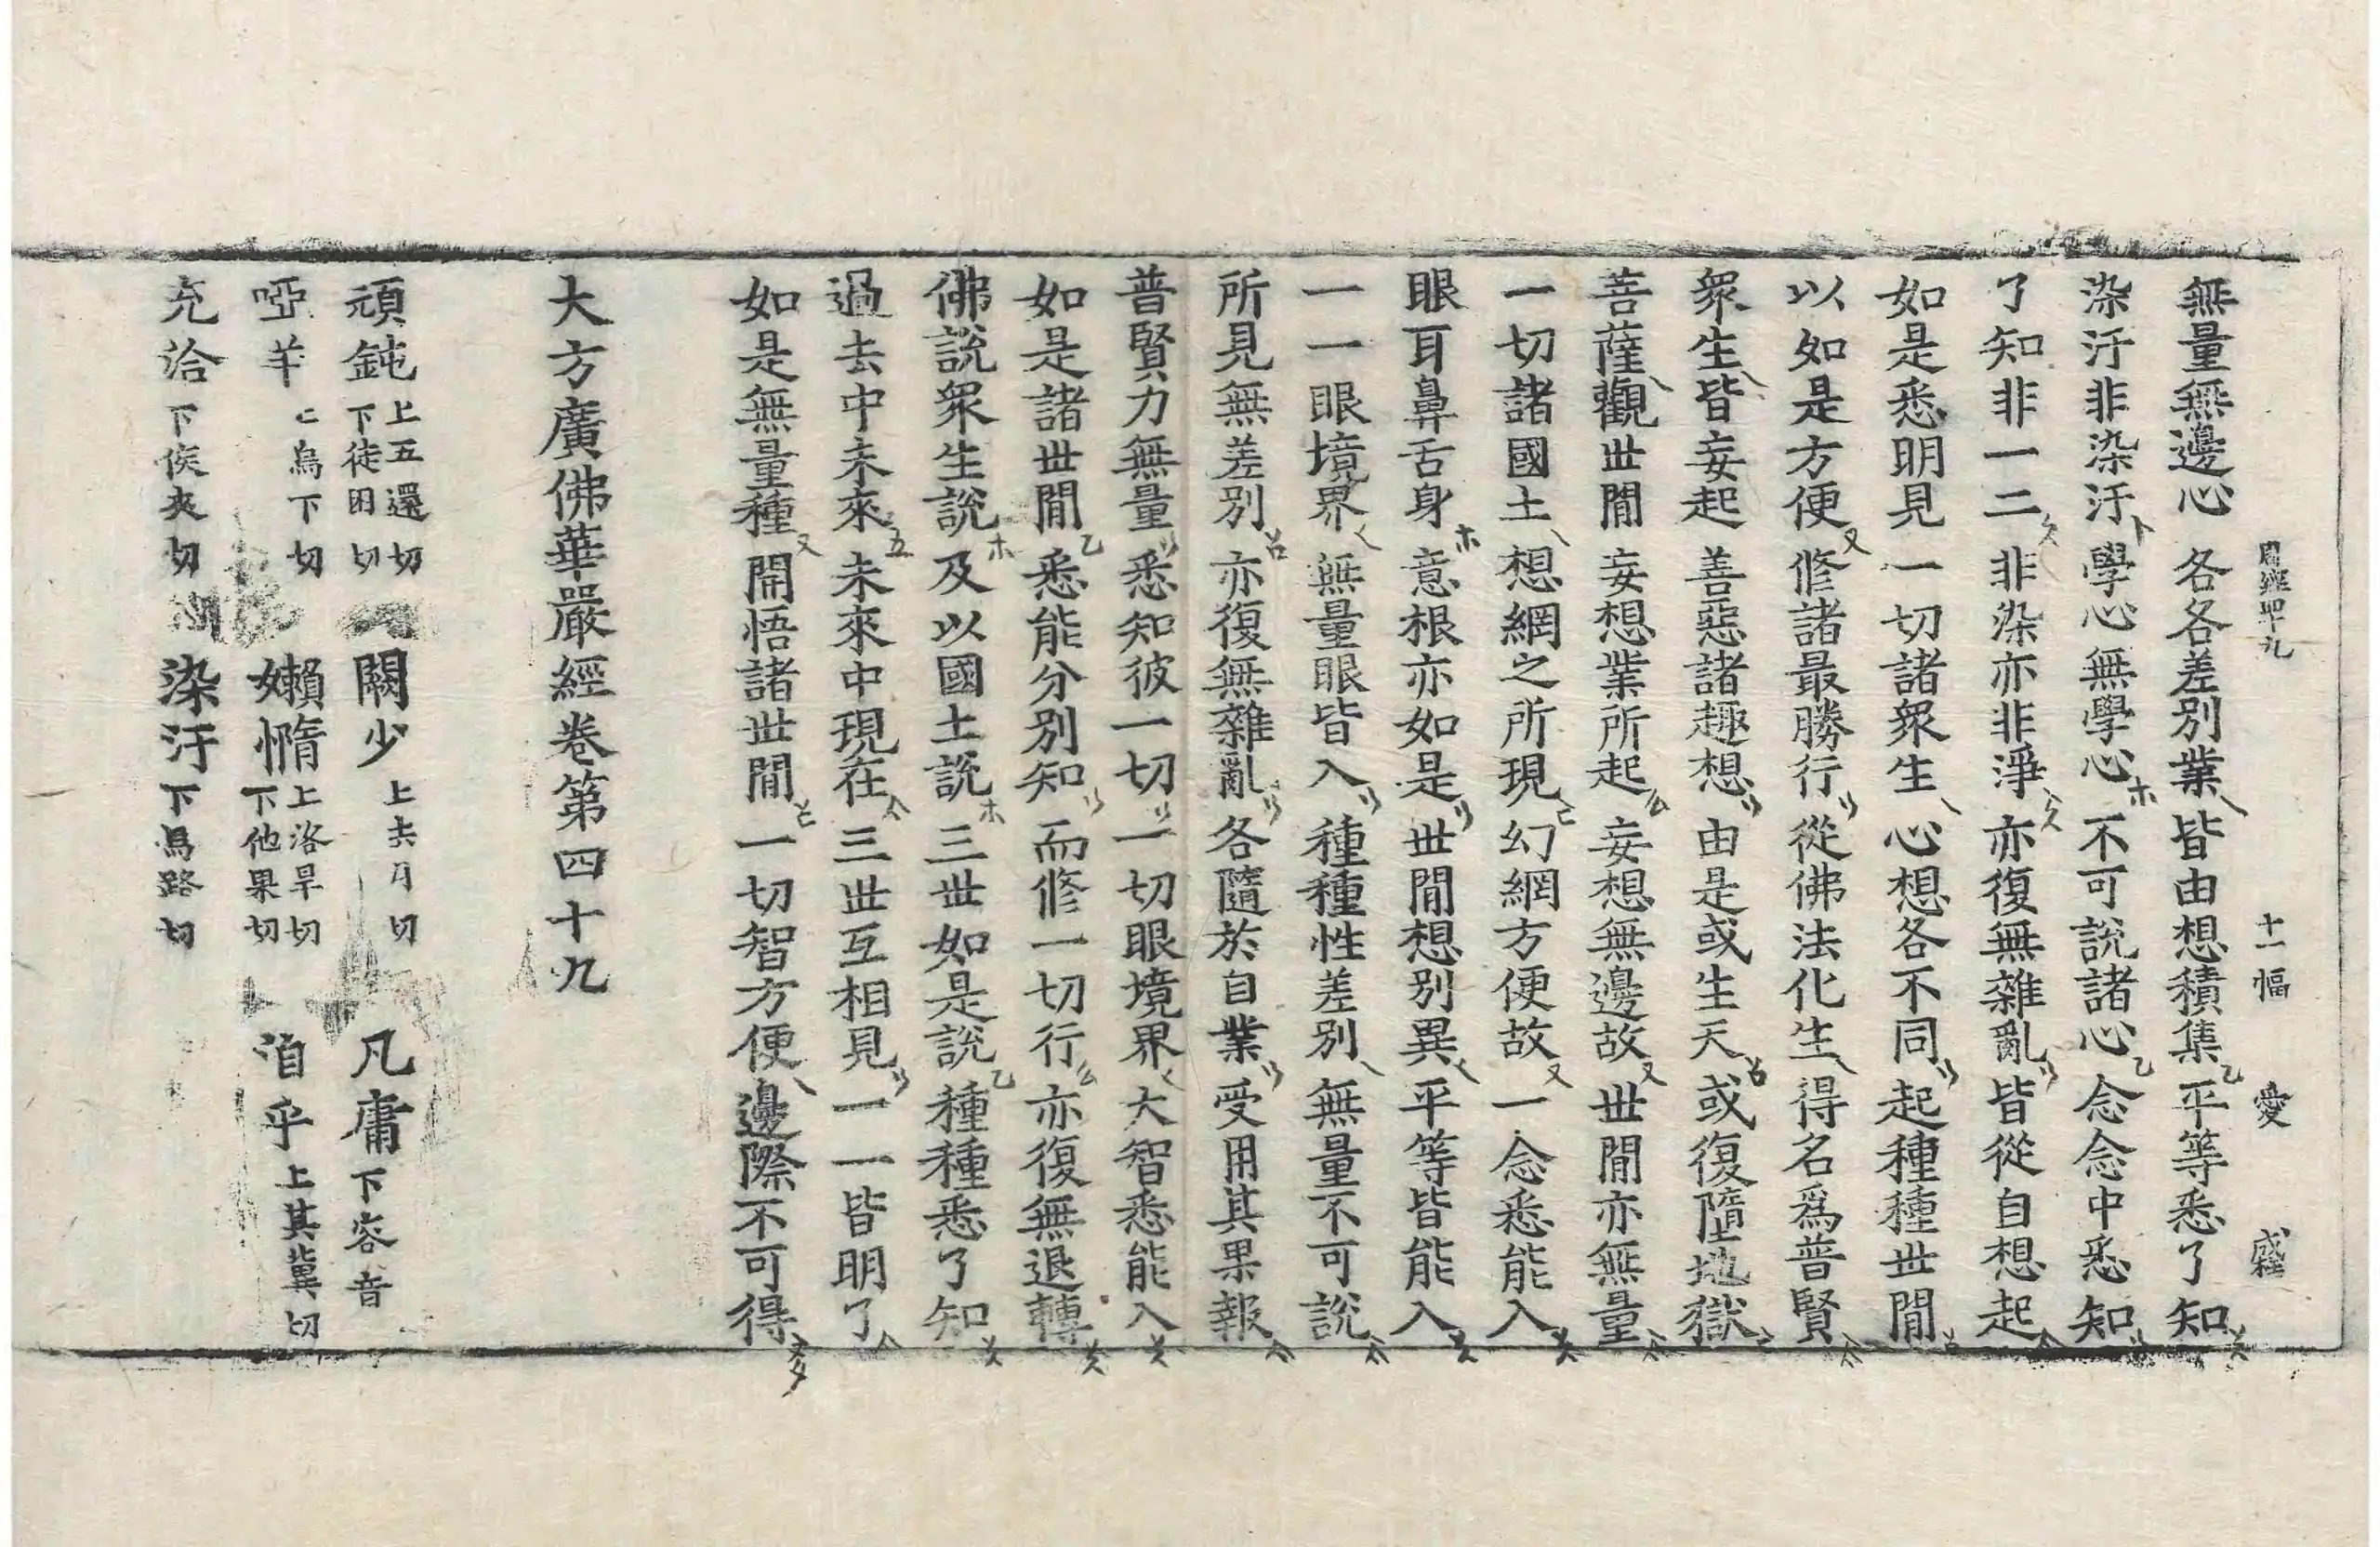 周經四十九　十一幅　愛
無量無邊心　各各差別業　皆由想積集　平等悉了知
染汙非染汙　學心無學心　不可說諸心　念念中悉知
了知非一二　非染亦非淨　亦復無雜亂　皆從自想起
如是悉明見　一切諸衆生　心想各不同　起種種世間
以如是方便　修諸最勝行　從佛法化生　得名爲普賢
衆生皆妄起　善惡諸趣想　由是或生天　或復墮地獄
菩薩觀世間　妄想業所起　妄想無邊故　世間亦無量
一切諸國土　想網之所現　幻網方便故　一念悉能入
眼耳鼻舌身　意根亦如是　世間想別異　平等皆能入
一一眼境界　無量眼皆入　種種性差別　無量不可說
所見無差別　亦復無雜亂　各隨於自業　受用其果報
普賢力無量　悉知彼一切　一切眼境界　大智悉能入
如是諸世間　悉能分別知　而修一切行　亦復無退轉
佛說衆生說　及以國土說　三世如是說　種種悉了知
過去中未來　未來中現在　三世互相見　一一皆明了
如是無量種　開悟諸世間　一切智方便　邊際不可得
大方廣佛華嚴經卷第四十九
頑鈍　上五還切　下徒困切　闕少　上去月切　凡庸　下容音
啞羊　上烏下切　嬾惰　上洛旱切　下他果切　洎乎　上其冀切
充洽　下侯夾切　染汙　下烏路切